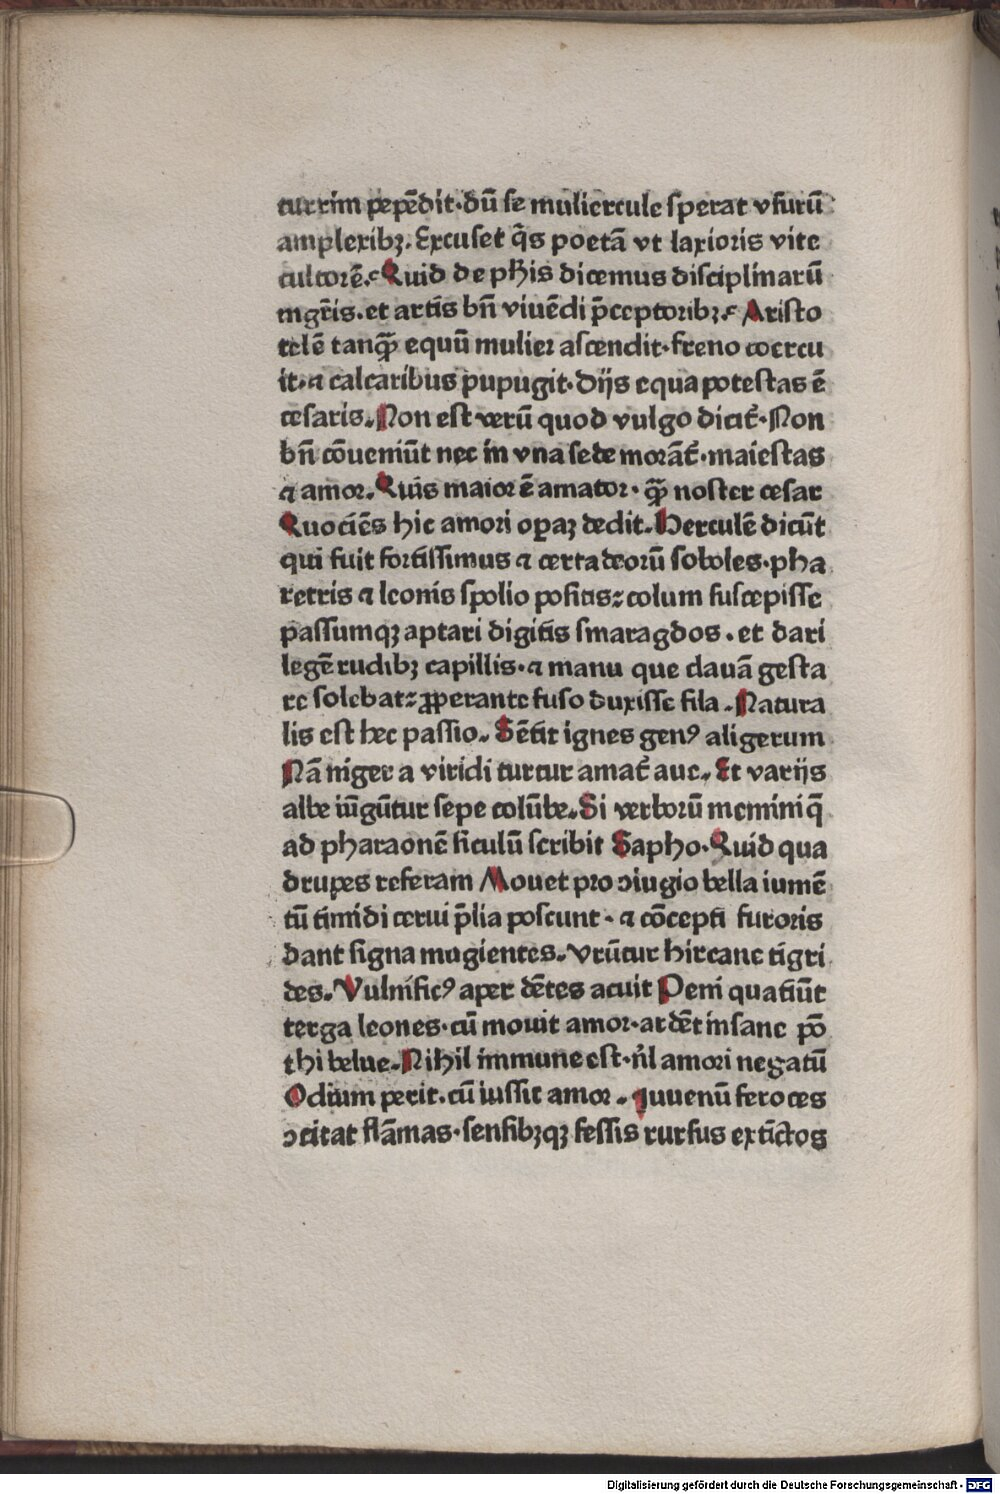 turrim pepēdit·dū se muliercule sperat vsurū
amplexibꝫ. Excuset q̄s poetā vt laxioris vite
cultorē. Quid de ph̄is dicemus disciplinarū
mgr̄is. et artis bn̄ viuēdi p̄ceptoribꝫ. Aristo
telē tanqꝫ̄ equū mulier ascendit·freno coercu
it·⁊ calcaribus pupugit·Dijs equa potestas ē
cesaris. Non est verū quod vulgo dicit̄·Non
bn̄ cōueniūt nec in vna sede morāt̄·maiestas
⁊ amor. Quis maior ē amator· qꝫ̄ noster cesar
Quociēs hic amori oꝑaꝫ dedit. Herculē dicūt
qui fuit fortissimus ⁊ certa deorū soboles·pha
retris ⁊ leonis spolio positis: colum suscepisse
passumqꝫ aptari digitis smaragdos · et dari
legē rudibꝫ capillis·⁊ manu que clauā gesta
re solebat: ꝓperante fuso duxisse fila . Natura
lis est hec passio. Sētit ignes genꝰ aligerum
Nā niger a viridi turtur amat̄ aue. Et varijs
albe iūgūtur sepe colūbe. Si verborū memini q̄
ad pharaonē siculū scribit Sapho. Quid qua
drupes referam Mouet pro ↄiugio bella iumē
tū timidi cerui p̄lia poscunt · ⁊ cōcepti furoris
dant signa mugientes. Vrūtur hircane tigri
des. Vulnificꝰ aper dētes acuit Peni quatiūt
terga leones·cū mouit amor·ardēt insane pō
thi belue. Nihil immune est·nl̄ amori negatū
Odium perit. cū iussit amor . Iuuenū feroces
ↄcitat flāmas·senibꝫqꝫ fessis rursus extīctos
Digitalisierung gefördert durch die Deutsche Forschungsgemeinschaft - DFG